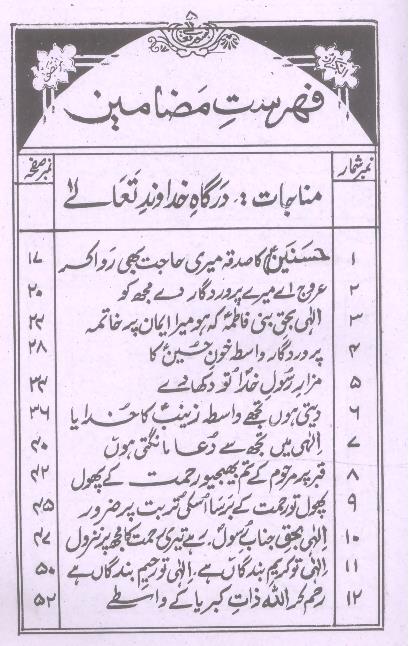 ۵
فہرستِ مَضامین
نمبر شمار
مناجات : دَرگاہِ خداوندِ تَعَالےٰ
نمبر صفحہ
۱ حَسنَینؑ کا صدقہ میری حاجت بھی رَوا کر ۱۷
۲ عروج اے میرے پروردگار دے مجھ کو ۲۰
۳ الٰہی بحقِ بنی فاطمہؑ کہ ہو میرا ایمان پر خاتمہ ۲۲
۴ پروردگار واسطہ خونِ حسینؑ کا ۲۸
۵ مزارِ رسُولِ خدؐا تو دکھا دے ۳۳
۶ دیتی ہوں تجھے واسطہ زینبؑ کا خُدایا ۳۶
۷ اِلٰہی میں تجھ سے دُعا مانگتی ہوں ۴۰
۸ قبر پر مرحوم کے تم بھیجیو رحمت کے پھول ۴۲
۹ پھول تو رحمت کے برسا اسکی تُربت پر ضرور ۴۵
۱۰ اِلٰہی بحقِ جنابِ رسُولؐ، رہے تیری رحمت کا مجھ پر نزول ۴۷
۱۱ اِلٰہی تو کریمِ بندگاں ہے، اِلٰہی تو رحیمِ بندگاں ہے ۵۰
۱۲ رحم کر اللہ ذاتِ کبریا کے واسطے ۵۲